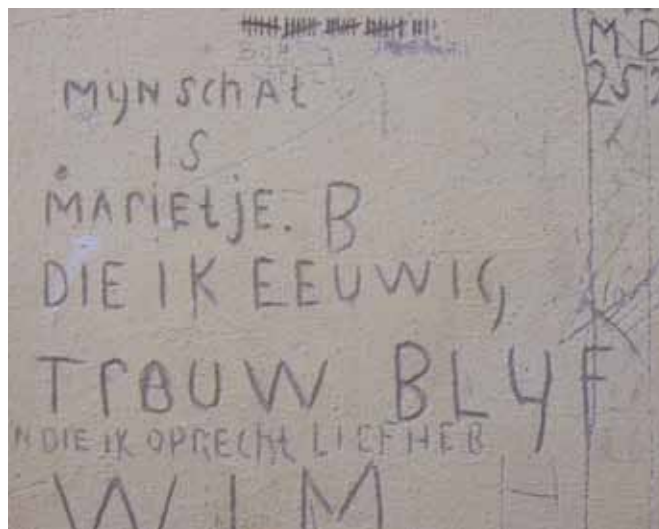 MyN SchAt
IS
MAriEtjE. B
DIE IK EEUWIG
TrOUW BLYF
N DIE IK OPrEcht LIEFHEB
WIM
MD
252